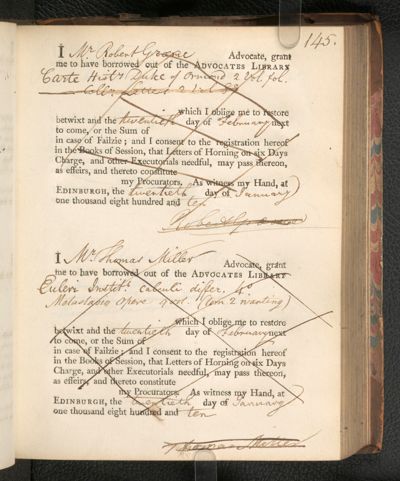 145.
I Mr. Robert Græme Advocate, grant
me to have borrowed out of the ADVOCATES LIBRARY
Carte Histy. Duke of Ormond 2 Vol. fol.
2 vol 89
which I oblige me to restore
betwixt and the twentieth day of February next
to come, or the Sum of
in case of Failzie; and I consent to the registration hereof
in the Books of Session, that Letters of Horning on six Days
Charge, and other Executorials needful, may pass thereon,
as effeirs, and thereto constitute
my Procurators. As witness my Hand, at
EDINBURGH, the twentieth day of January
one thousand eight hundred and ten
Robert Græme
I Mr. Thomas Miller Advocate, grant
me to have borrowed out of the ADVOCATES LIBRARY
Euleri Instits. calculi differ. 4o.
Metastasio opere 4 vol. (Tom. 2 wanting)
which I oblige me to restore
betwixt and the twentieth day of February next
to come, or the Sum of
in case of Failzie; and I consent to the registration hereof
in the Books of Session, that Letters of Horning on six Days
Charge, and other Executorials needful, may pass thereon,
as effeirs, and thereto constitute
my Procurators. As witness my Hand, at
EDINBURGH, the twentieth day of January
one thousand eight hundred and ten
Thomas Miller